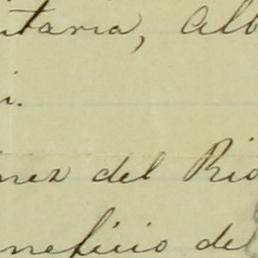 itaria, Alb
i.
nez del Rio
neficio del